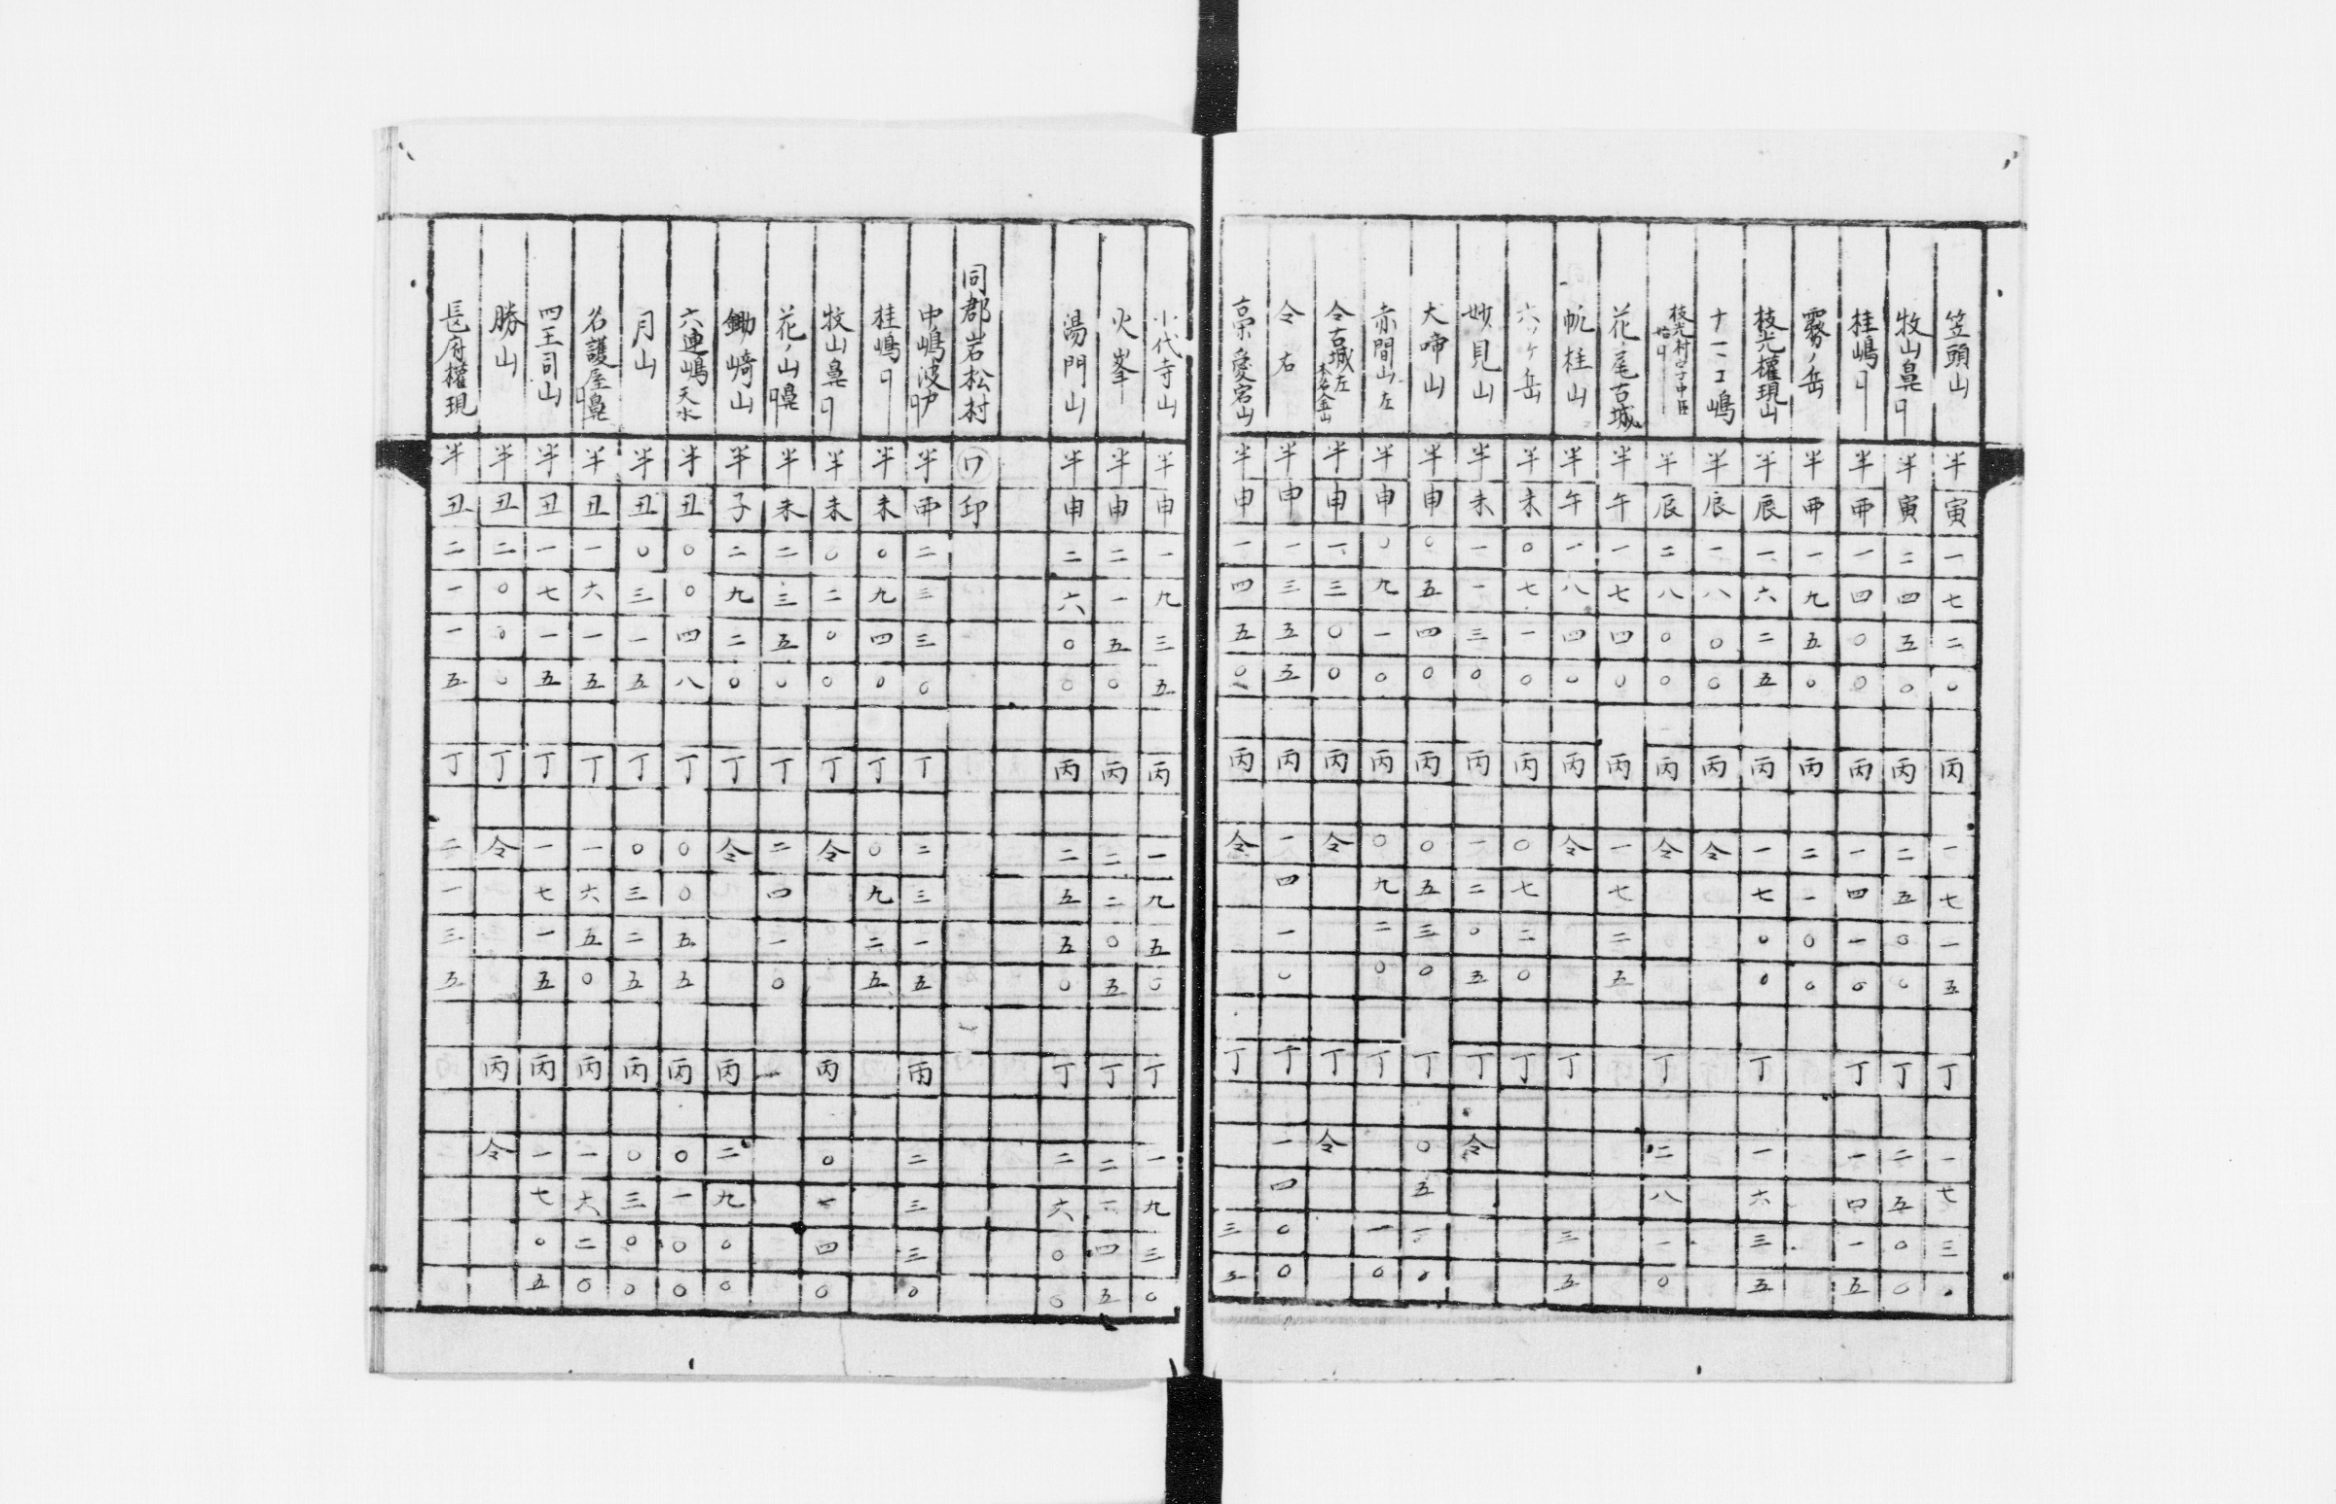 笠頭山 半寅一七二〇 丙一七一五 丁一七三〇
牧山鼻 半寅二四五〇 丙二五〇〇 丁二五〇〇
桂嶋 半酉一四〇〇 丙一四一〇 丁一四一五
霧ノ岳 半酉一九五〇 丙二一〇〇
枝光權現山 半辰一六二五 丙一七〇〇 丁一六三五
嶋 半辰一八〇〇 丙令
枝光村 半辰二八〇〇 丙令 丁二八一〇
花ノ尾古城 半午一七四〇 丙一七二五
帆柱山 半午一八四〇 丙令 丁三五
六ケ岳 半未〇七一〇 丙〇七二〇 丁
妙見山 半未一一三〇 丙一二〇五 丁令
犬啼山 半申〇五四〇 丙〇五三〇 丁〇五一〇
赤間山左 半申〇九一〇 丙〇九二〇 丁一〇
令古城左 本名金山 半申一三〇〇 丙令 丁令
令右 半申一三五五 丙一四一〇 丁一四〇〇
吉宗愛宕山 半申一四五〇 丙令 丁三五
小代寺山 半申一九三五 丙一九五〇 丁一九三〇
火峯 半申二一五〇 丙二二〇五 丁二一四五
湯門山 半申二六〇〇 丙二五五〇 丁二六〇〇
同郡岩松村 印
中嶋波戸 半酉二三三〇 丁二三一五 丙二三三〇
桂嶋 半未〇九四〇 丁〇九二五
牧山鼻 半未〇二〇〇 丁令 丙〇一四〇
花ノ山鼻 半未二三五〇 丁二四一〇
鋤﨑山 半子二九二〇 丁令 丙二九〇〇
六連嶋 天水 半丑〇〇四八 丁〇〇五五 丙〇一〇〇
月山 半丑〇三一五 丁〇三二五 丙〇三〇〇
名護屋鼻 半丑一六一五 丁一六五〇 丙一六二〇
四王司山 半丑一七一五 丁一七一五 丙一七〇五
勝山 半丑二〇〇〇 丁令 丙令
長府權現 半丑二一一五 丁二一三五